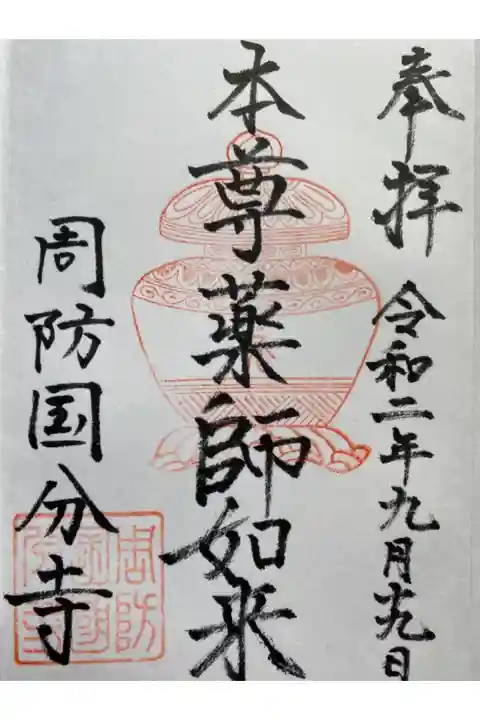 奉拝 令和二年九月十九日
本尊薬師如来
周防国分寺